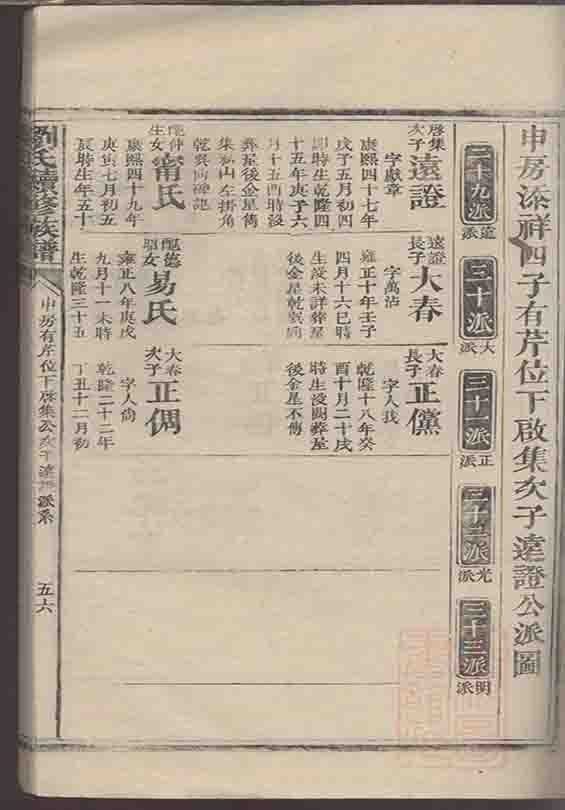 申房添祥四子有芹位下啟集次子遠證公派圖
三十九派
遠派
三十派
大派
三十一派
正派
三十二派
光派
三十三派
明派
啓集
次子
遠證
字獻章
康熙四十七年
戊子五月初四
卯時生乾隆四
十五年庚子六
月十五酉時沒
葬屋後金星傳
集私山左掛角
配仲
生女
甯氏
康熙四十九年
庚寅七月初五
辰時生年五十
遠證
長子
大春
字萬沾
雍正十年壬子
四月十六巳時
生沒未詳葬屋
後金星乾巽向
配德
女
易氏
雍正八年庚戌
九月十一未時
生乾隆三十五
大春
長子
正儻
字人我
乾隆十八年癸
酉十月二十戌
時生沒闕葬屋
後金星不傳
大春
次子
正倜
字人尚
乾隆二十二年
丁丑十二月初
劉氏續修族譜
申房有芹位下啟集公次子遠證派系
五六